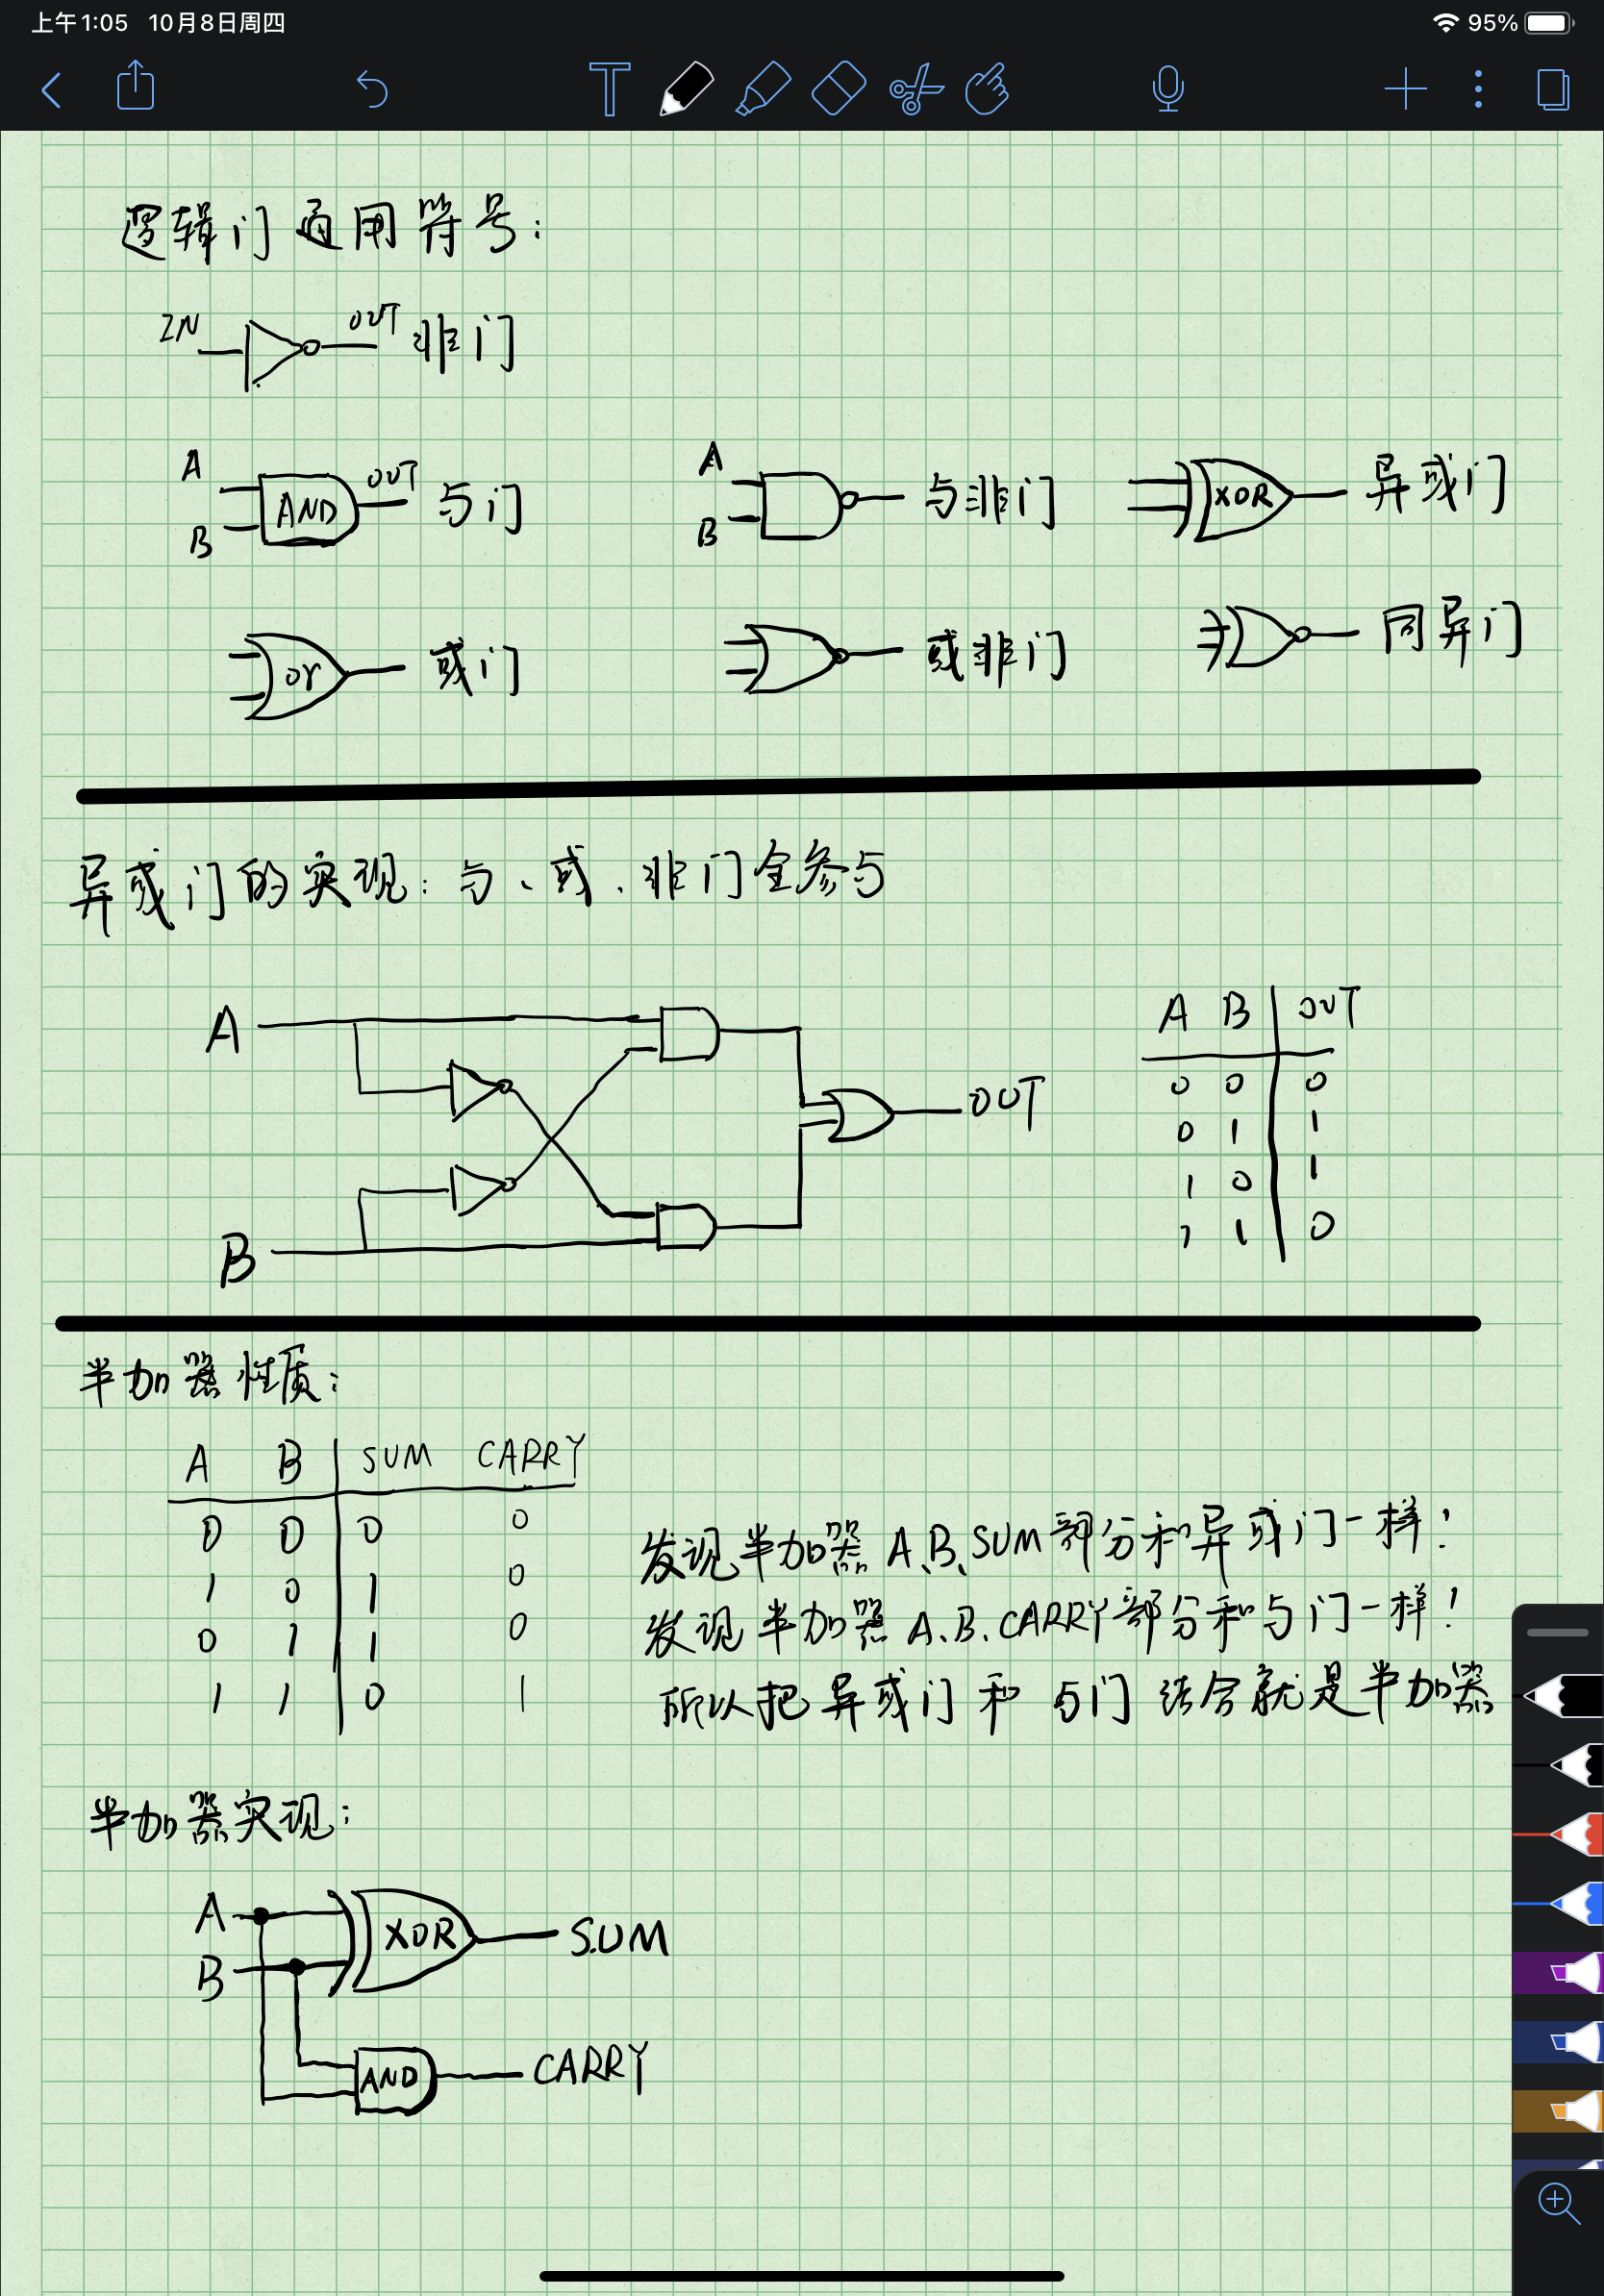 上午1:05 10月8日周四 95%
逻辑门通用符号：
IN OUT 非门
A B AND OUT 与门
A B 与非门
XOR 异或门
or 或门
或非门
同异门
异或门的实现：与、或、非门全参与
A
B
OUT
A B OUT
0 0 0
0 1 1
1 0 1
1 1 0
半加器性质：
A B SUM CARRY
0 0 0 0
1 0 1 0
0 1 1 0
1 1 0 1
发现半加器A、B、SUM部分和异或门一样！
发现半加器A、B、CARRY部分和与门一样！
所以把异或门和与门结合就是半加器
半加器实现：
A XOR SUM
B
AND CARRY